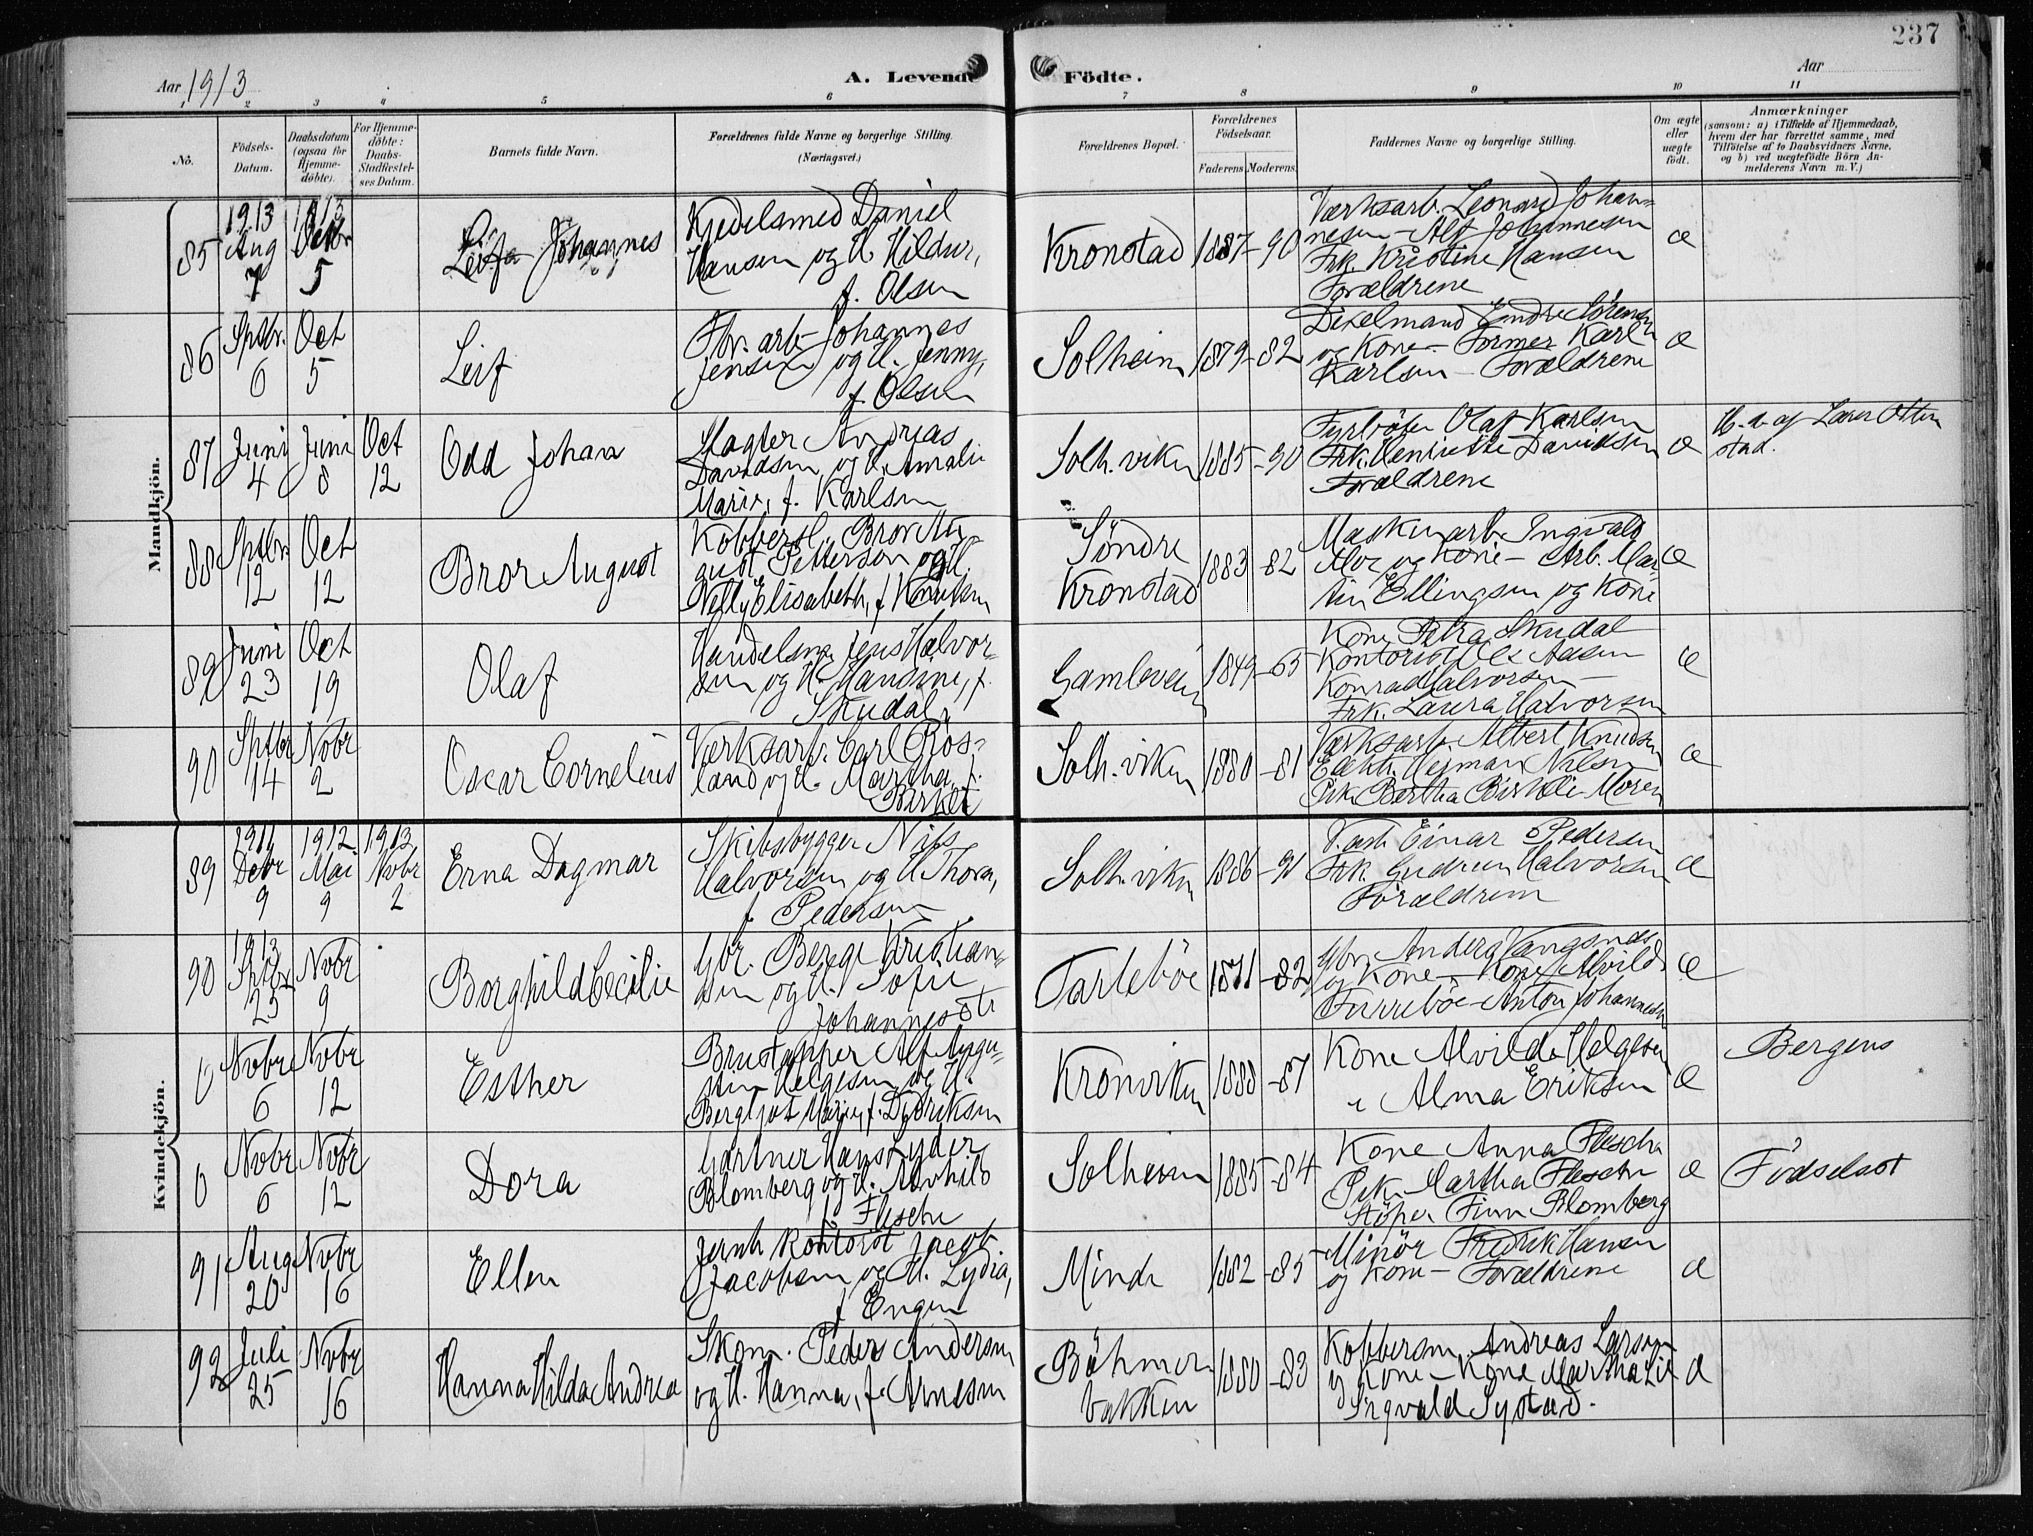 237
Aar 1913
A. Levende Födte.
Aar
1 2 3 4 5 6 7 8 9 10 11
No.
Födsels-Datum.
Daabsdatum (ogsaa for Hjemme-döbte).
For Hjemme-döbte: Daabs-Stadfæstel-ses Datum.
Barnets fulde Navn.
Forældrenes fulde Navne og borgerlige Stilling.
(Næringsvei.)
Forældrenes Bopæl.
Forældrenes Födselsaar.
Faderens. Moderens.
Faddernes Navne og borgerlige Stilling.
Om ægte eller uægte födt.
Anmærkninger
(saasom: a) i Tilfælde af Hjemmedaab,
hvem der har forrettet samme, med
Tilföielse af to Daabsvidners Navne,
og b) ved uægtefödte Börn An-
melderens Navn m. V.)
Mandkjön.
85
1913 Aug 7
1913 Octbr 5
Johannes
Kjedelsmed Daniel
Hansen og H. Hildur,
f. Olsen
Kronstad
1887-90
Værksarb. Leonard Johan-
nesen - Alf Johannesen
Frk. Kristine Hansen
Forældrene
æ
86
Septbr. 6
Oct 5
Leif
Fbr. arb. Johannes
Jensen og H. Jenny,
f. Olsen
Solheim
1879-82
Dixelmand Endre Sörensen
og Kone - Former Karl
Karlsen - Forældrene
æ
87
Juni 4
Juni 8
Oct 12
Odd Johan
Slagter Andreas
Davidsen og H. Amalie
Marie, f. Karlsen
Solh. viken
1885-90
Fyrböter Olaf Karlsen
Frk. Henriette Davidsen
Forældrene
æ
H. d. af Lærer Otten
stad.
88
Septbr 12
Oct 12
Bror August
Kobbersl. Bror Au-
gust Petterson og H.
Nelly Elisabeth, f. Knutsen
Söndre
Kronstad
1883-82
Maskinarb. Ingvald
og Kone - Arb. Mar-
tin Ellingsen og Kone
æ
89
Juni 23
Oct 19
Olaf
Handelsm. Jens Halvor-
sen og H. Mandine, f.
Skudal
Gamleveien
1849-65
Kone Petra Skudal
Kontorist Ole Aasen
Konrad Halvorsen -
Frk. Laura Halvorsen
æ
90
Septbr 14
Novbr 2
Oscar Cornelius
Værksarb. Carl Ros-
land og H. Martha, f.
Solh. viken
1880-81
Værksarb. Albert Knudsen
Herman Nilsen
Pik. Bertha - Moren
æ
Kvindekjön.
89
1911 Decbr 9
1912 Mai 9
1913 Novbr 2
Erna Dagmar
Skibsbygger Nils
Halvorsen og H. Thora,
f. Pedersen
Solh. viken
1886-91
V. arb. Einar Pedersen
Frk. Gudrun Halvorsen
Forældrene
æ
90
1913 Septbr 25
Novbr 9
Borghild Cecilie
Gbr. Berge Kristian-
sen og H. Sofie
Johannesdtr
Tarlebö
1871-82
Gbr. Anders Vangsnes
og Kone - Kone Alvilde
Furrebö - Anton Johannesen
æ
0
Novbr 6
Novbr 12
Esther
Brustapper Alf Augu-
stin Helgesen og H.
Bergljot Marie, f. Dydriksen
Kronviken
1888-87
Kone Alvilde Helgesen
" Alma Eriksen
æ
Bergens
0
Novbr 6
Novbr 12
Dora
Gartner Hans Lyder
Blomberg og H. Alvhild
f. Flesche
Solheim
1885-84
Kone Anna Flesche
Pik. Martha Flesche
Stöper Finn Blomberg
æ
Födselsst
91
Aug 20
Novbr 16
Ellen
Jernb. Kontorist Jacob
Jacobsen og H. Lydia,
f. Engen
Minde
1882-85
Minör Fredrik Hansen
og Kone - Forældrene
æ
92
Juli 25
Novbr 16
Hanna Hilda Andrea
Skom. Peder Andersen
og H. Hanna, f. Arnesen
Böhmer
bakken
1880-83
Kobbersm. Andreas Larsen
og Kone - Kone Martha Lie
Sigvald Systad.
æ